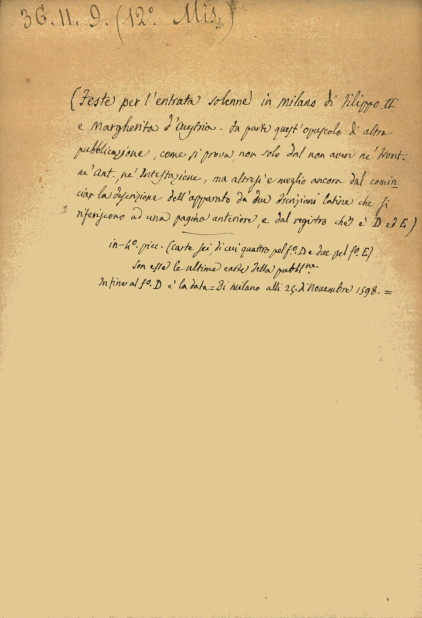 36.11.9. (12º. Mis.)
(Feste per l'entrata solenne in milano di Filippo II
e Margherita d'Austria - Fa parte quest'opuscolo di altra
pubblicazione, come si prova, non solo dal non avere ne' Front.
ne' Ant. ne' Intestazione, ma altresì e meglio ancora dal comin
ciar la descrizione dell'apparato da due iscrizioni latine che si
riferiscono ad una pagina anteriore, e dal registro che è D ed E)
in-4º. picc. (carte sei, di cui quattro pel fº. D e due pel fº. E)
Son esse le ultime carte della pubbl.ne
In fine al fº. D è la data = Di milano alli 25. di Novembre 1598. =